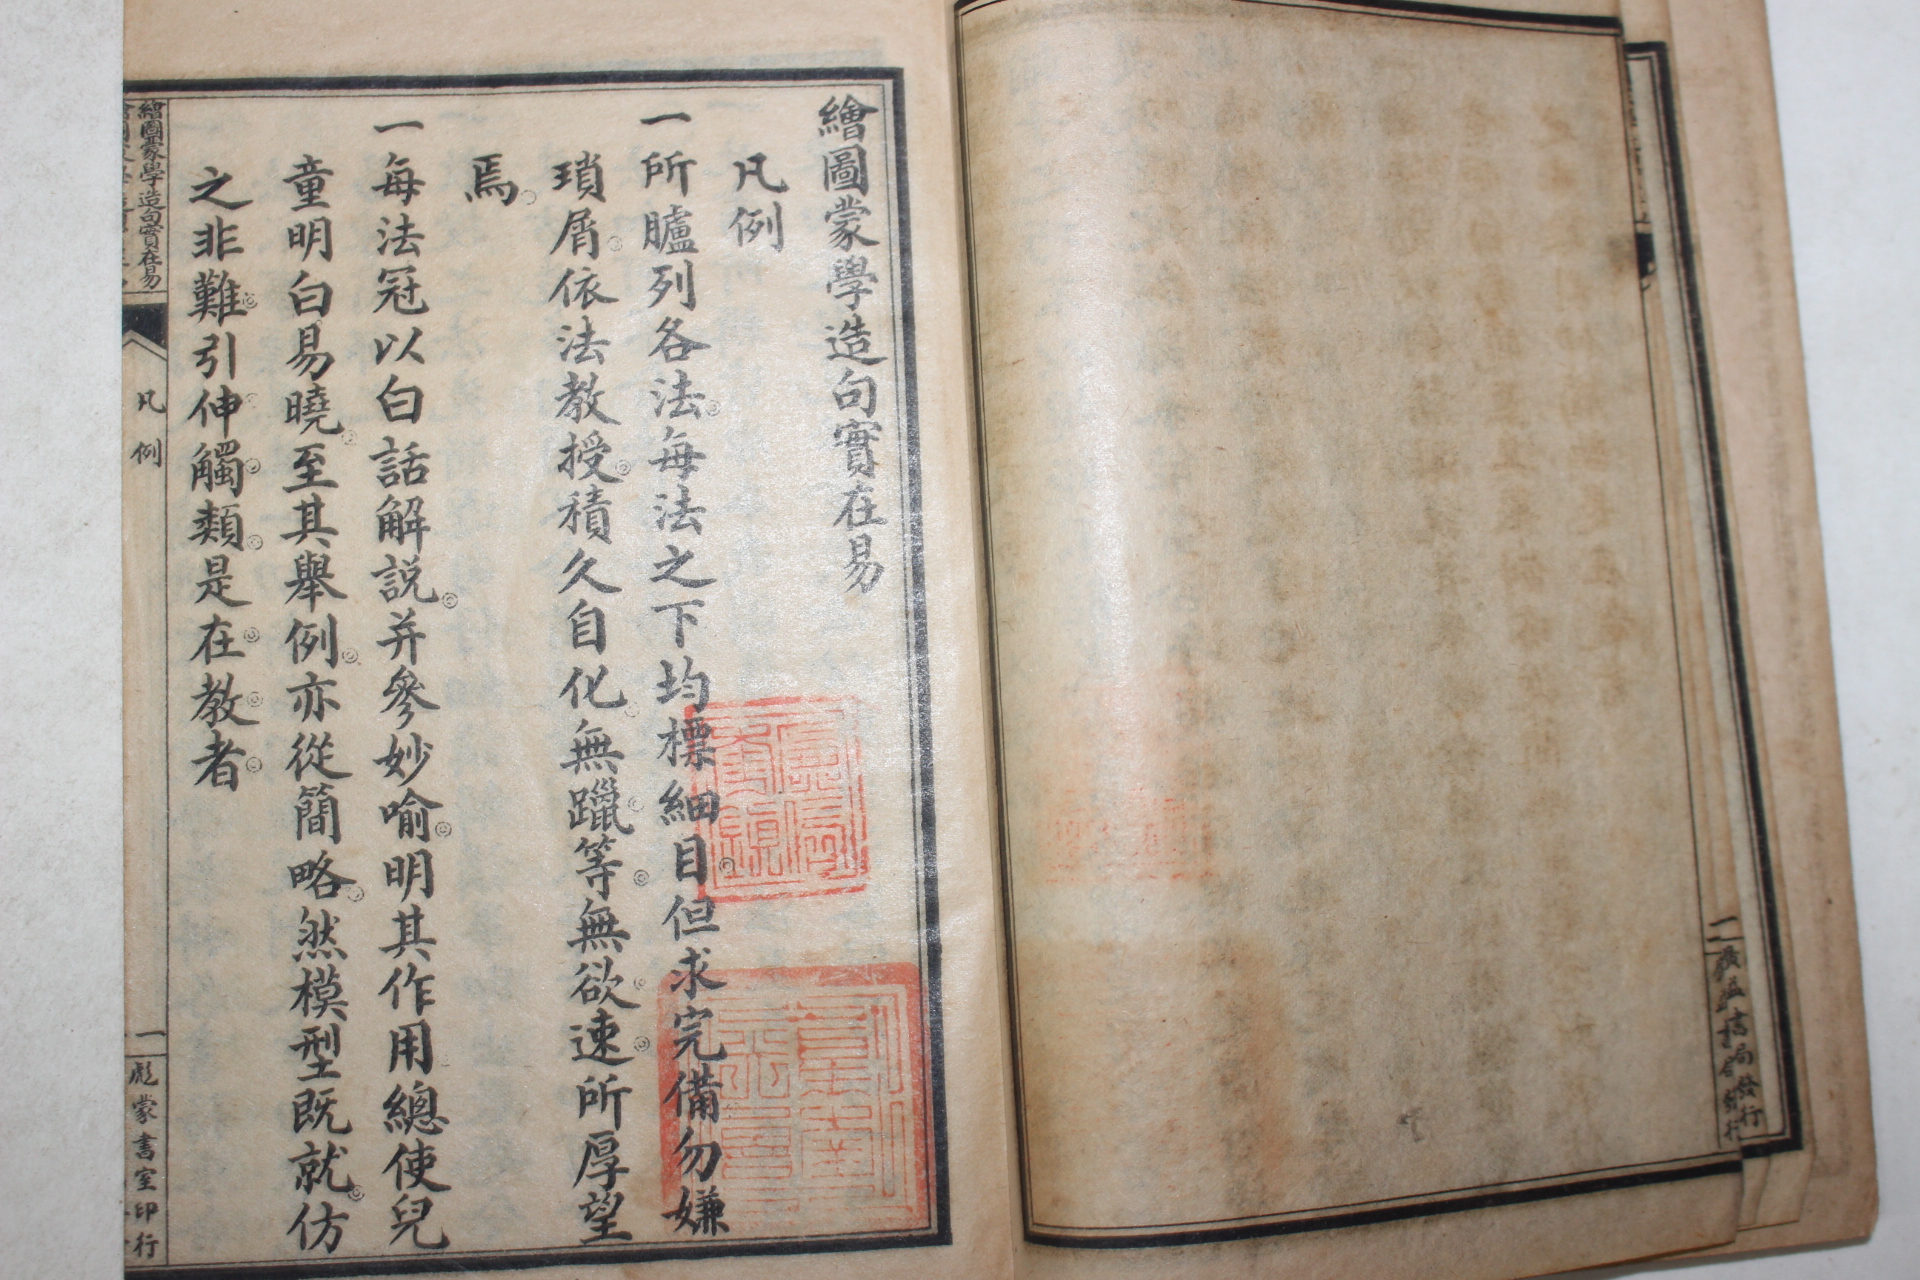 繪圖蒙學造句實在易
凡例
一所臚列各法每法之下均標細目但求完備勿嫌
瑣屑依法教授積久自化無躐等無欲速所厚望
焉
一每法冠以白話解説并參妙喻明其作用總使兒
童明白易曉至其舉例亦從簡略然模型既就仿
之非難引伸觸類是在教者
繪圖蒙學造句實在易
凡例
一
彪蒙書室印行
書局發行